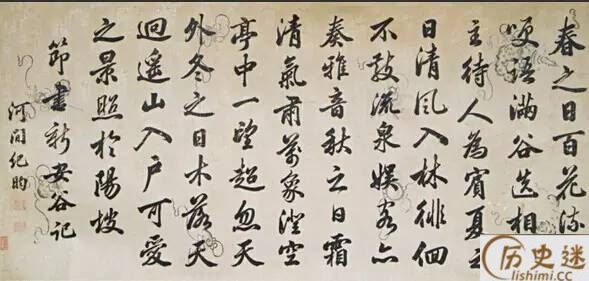 春之日百花流
哽語滿谷迭相
主待人為賓夏之
日清風入林徘徊
不散流泉娛客亦
奏雅音秋之日霜
清氣肅萬象澄空
亭中一望超忽天
外冬之日木落天
迥遥山入戶可愛
之景照於陽坡
節書新安谷記
河間紀昀
历史迷
lishimi.cc